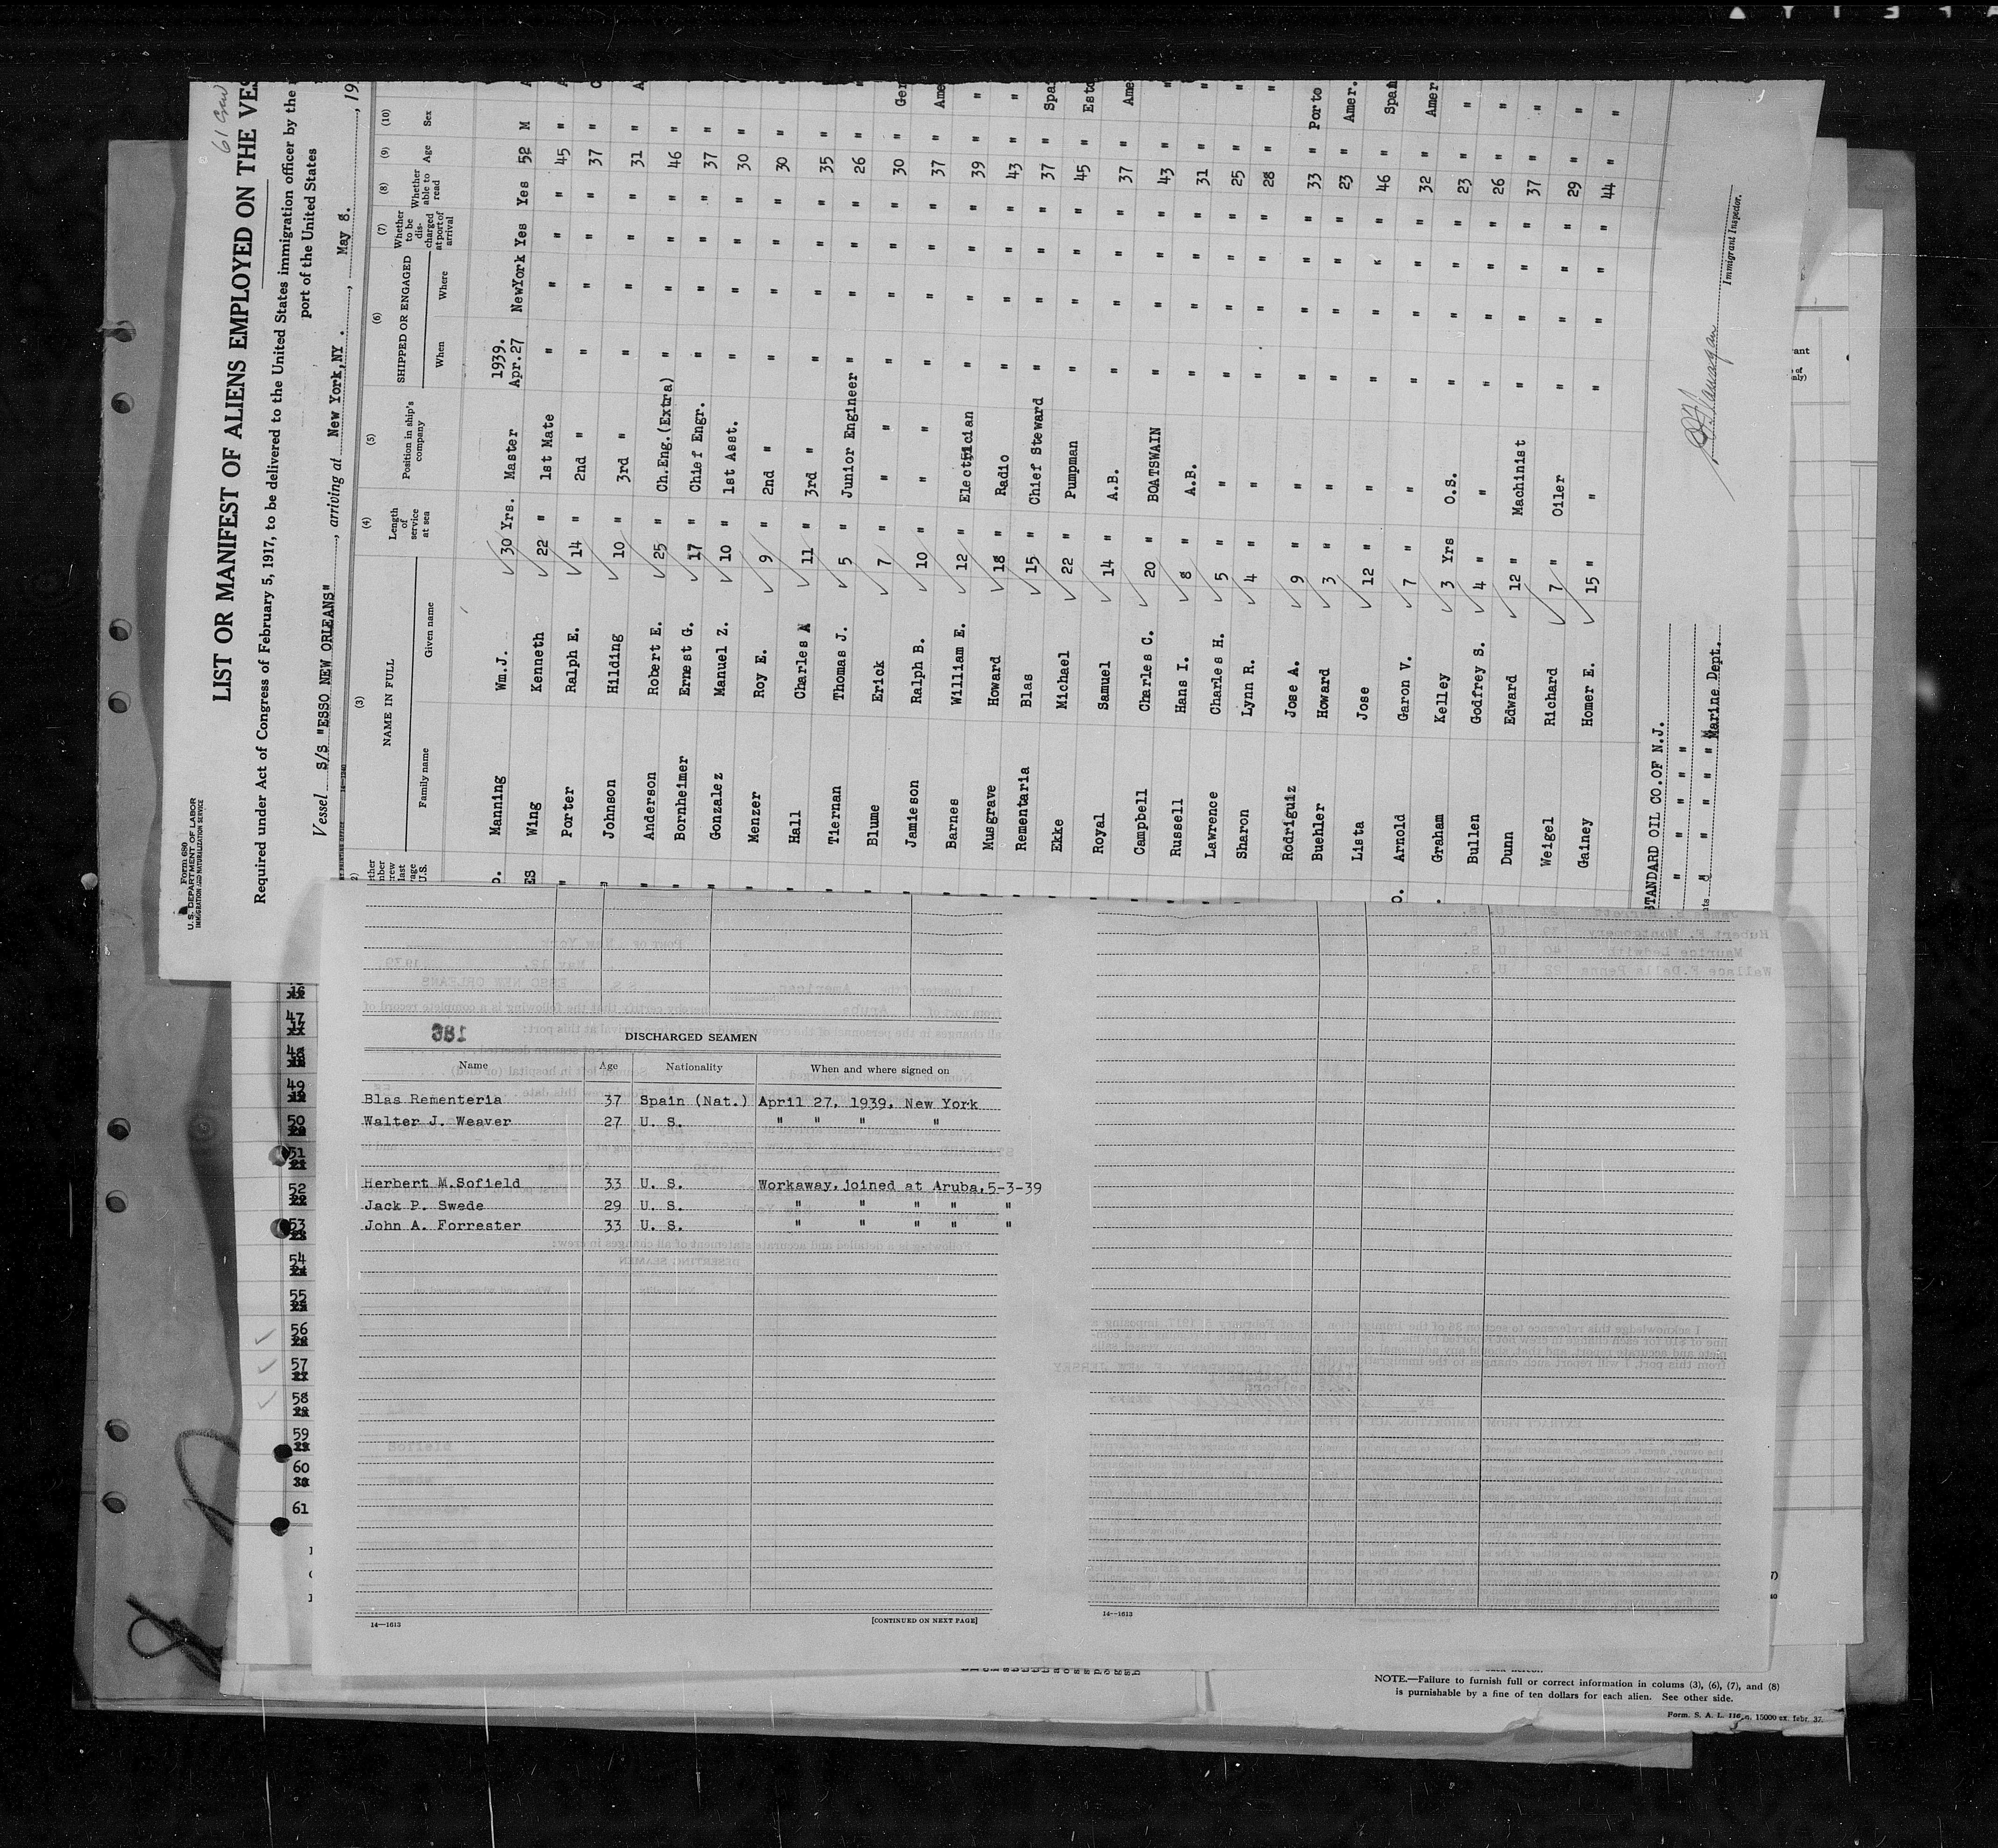 61 Crew
Form 680
U. S. DEPARTMENT OF LABOR
IMMIGRATION AND NATURALIZATION SERVICE
LIST OR MANIFEST OF ALIENS EMPLOYED ON THE VES
Required under Act of Congress of February 5, 1917, to be delivered to the United States immigration officer by the
port of the United States
Vessel S/S "ESSO NEW ORLEANS", arriving at New York,NY., May 8., 19
(3) (4) (5) (6) (7) (8) (9) (10)
NAME IN FULL Length of service at sea Position in ship's company SHIPPED OR ENGAGED Whether to be discharged at port of arrival Whether able to read Age Sex
Family name Given name When Where
1939.
Manning Wm.J. 30 Yrs. Master Apr.27 NewYork Yes Yes 52 M A
Wing Kenneth 22 " 1st Mate " " " " 45 " A
Porter Ralph E. 14 " 2nd " " " " " 37 " C
Johnson Hilding 10 " 3rd " " " " " 31 " A
Anderson Robert E. 25 " Ch.Eng.(Extra) " " " " 46 "
Bornheimer Ernest G. 17 " Chief Engr. " " " " 37 "
Gonzalez Manuel Z. 10 " 1st Asst. " " " " 30 "
Menzer Roy E. 9 " 2nd " " " " " 30 "
Hall Charles A 11 " 3rd " " " " " 35 "
Tiernan Thomas J. 5 " Junior Engineer " " " " 26 "
Blume Erick 7 " " " " " " 30 " Ger
Jamieson Ralph B. 10 " " " " " " 37 " Ame
Barnes William E. 12 " Electrician " " " " 39 " "
Musgrave Howard 18 " Radio " " " " 43 " "
Rementaria Blas 15 " Chief Steward " " " " 37 " Spa
Ekke Michael 22 " Pumpman " " " " 45 " Esto
Royal Samuel 14 " A.B. " " " " 37 " Ame
Campbell Charles C. 20 " BOATSWAIN " " " " 43 " "
Russell Hans I. 8 " A.B. " " " " 31 " "
Lawrence Charles H. 5 " " " " " " 25 " "
Sharon Lynn R. 4 " " " " " 28 " "
Rodriguiz Jose A. 9 " " " " " " 33 " Porto
Buehler Howard 3 " " " " " " 23 " Amer.
Lista Jose 12 " " " " " " 46 " Span
Arnold Garon V. 7 " " " " " " 32 " Amer
Graham Kelley 3 Yrs O.S. " " " " 23 " "
Bullen Godfrey S. 4 " " " " " " 26 " "
Dunn Edward 12 " Machinist " " " " 37 " "
Weigel Richard 7 " Oiler " " " " 29 " "
Gainey Homer E. 15 " " " " " " 44 " "
STANDARD OIL CO.OF N.J.
" " " " "
" " " " " Marine Dept.
Immigrant Inspector.
381
DISCHARGED SEAMEN
Name Age Nationality When and where signed on
Blas Rementeria 37 Spain (Nat.) April 27, 1939, New York
Walter J. Weaver 27 U. S. " " " "
Herbert M.Sofield 33 U. S. Workaway,joined at Aruba,5-3-39
Jack P. Swede 29 U. S. " " " " "
John A. Forrester 33 U. S. " " " " "
14—1613
[CONTINUED ON NEXT PAGE]
14—1613
47
49
50
51
52
53
54
55
56
57
58
59
60
61
NOTE.—Failure to furnish full or correct information in colums (3), (6), (7), and (8)
is punishable by a fine of ten dollars for each alien. See other side.
Form. S. A. L. 116.a. 15000 ex. febr. 37.